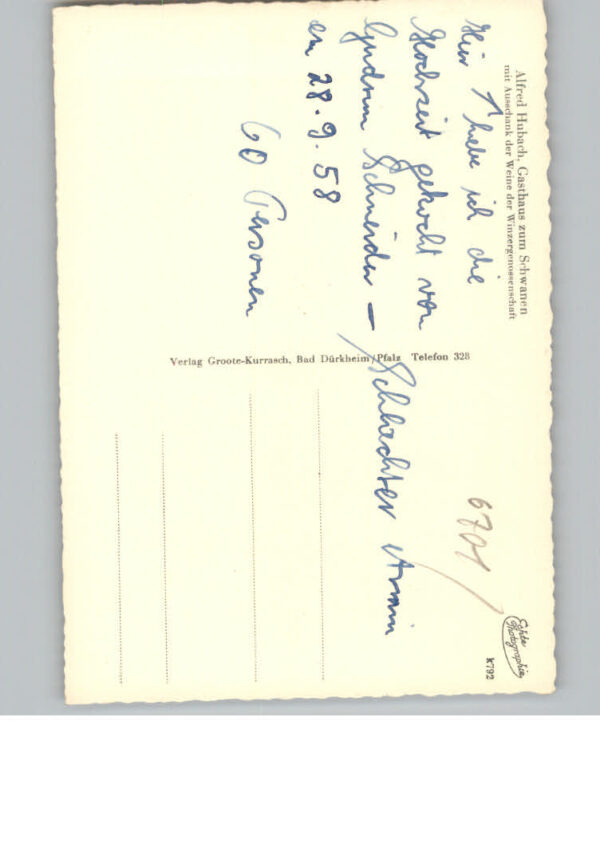 Alfred Hubach, Gasthaus zum Schwanen
mit Ausschank der Weine der Winzergenossenschaft
Hier ↑ habe ich die
Hochzeit gekocht von
Gudrun Schneider – Schlachter Armin
am 28.9.58
60 Personen
Verlag Groote-Kurrasch, Bad Dürkheim/Pfalz Telefon 328
6701/
Echte
Photographie
K792